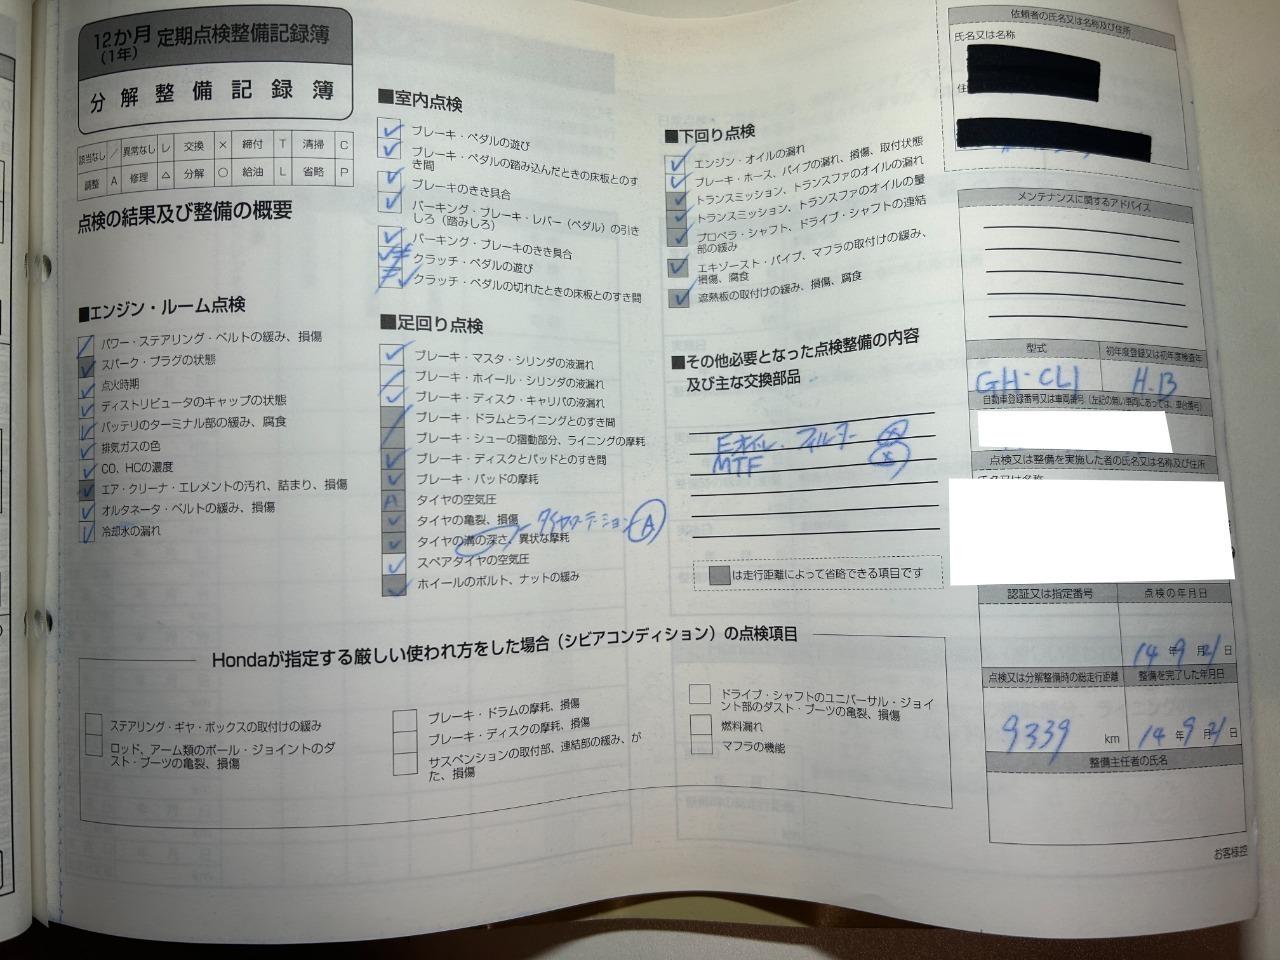 12か月 定期点検整備記録簿
(1年)
分解整備記録簿
該当なし / 異常なし レ 交換 × 締付 T 清掃 C
調整 A 修理 △ 分解 ○ 給油 L 省略 P
点検の結果及び整備の概要
■エンジン・ルーム点検
パワー・ステアリング・ベルトの緩み、損傷
スパーク・プラグの状態
点火時期
ディストリビュータのキャップの状態
バッテリのターミナル部の緩み、腐食
排気ガスの色
CO、HCの濃度
エア・クリーナ・エレメントの汚れ、詰まり、損傷
オルタネータ・ベルトの緩み、損傷
冷却水の漏れ
■室内点検
ブレーキ・ペダルの遊び
ブレーキ・ペダルの踏み込んだときの床板とのす
き間
ブレーキのきき具合
パーキング・ブレーキ・レバー（ペダル）の引き
しろ（踏みしろ）
パーキング・ブレーキのきき具合
クラッチ・ペダルの遊び
クラッチ・ペダルの切れたときの床板とのすき間
■足回り点検
ブレーキ・マスタ・シリンダの液漏れ
ブレーキ・ホイール・シリンダの液漏れ
ブレーキ・ディスク・キャリパの液漏れ
ブレーキ・ドラムとライニングとのすき間
ブレーキ・シューの摺動部分、ライニングの摩耗
ブレーキ・ディスクとパッドとのすき間
ブレーキ・パッドの摩耗
A タイヤの空気圧
タイヤの亀裂、損傷
タイヤローテーション A
タイヤの溝の深さ、異状な摩耗
スペアタイヤの空気圧
ホイールのボルト、ナットの緩み
■下回り点検
エンジン・オイルの漏れ
ブレーキ・ホース、パイプの漏れ、損傷、取付状態
トランスミッション、トランスファのオイルの漏れ
トランスミッション、トランスファのオイルの量
プロペラ・シャフト、ドライブ・シャフトの連結
部の緩み
エキゾースト・パイプ、マフラの取付けの緩み、
損傷、腐食
遮熱板の取付けの緩み、損傷、腐食
■その他必要となった点検整備の内容
及び主な交換部品
Eオイル、フィルター ×
MTF ×
は走行距離によって省略できる項目です
Hondaが指定する厳しい使われ方をした場合（シビアコンディション）の点検項目
ステアリング・ギヤ・ボックスの取付けの緩み
ロッド、アーム類のボール・ジョイントのダ
スト・ブーツの亀裂、損傷
ブレーキ・ドラムの摩耗、損傷
ブレーキ・ディスクの摩耗、損傷
サスペンションの取付部、連結部の緩み、が
た、損傷
ドライブ・シャフトのユニバーサル・ジョイ
ント部のダスト・ブーツの亀裂、損傷
燃料漏れ
マフラの機能
依頼者の氏名又は名称及び住所
氏名又は名称
メンテナンスに関するアドバイス
型式 初年度登録又は初年度検査年
GH-CL1 H.13
自動車登録番号又は車両番号（左記の無い車両にあっては、車台番号）
点検又は整備を実施した者の氏名又は名称及び住所
認証又は指定番号 点検の年月日
14年9月21日
点検又は分解整備時の総走行距離 整備を完了した年月日
9339 km 14年9月21日
整備主任者の氏名
お客様控